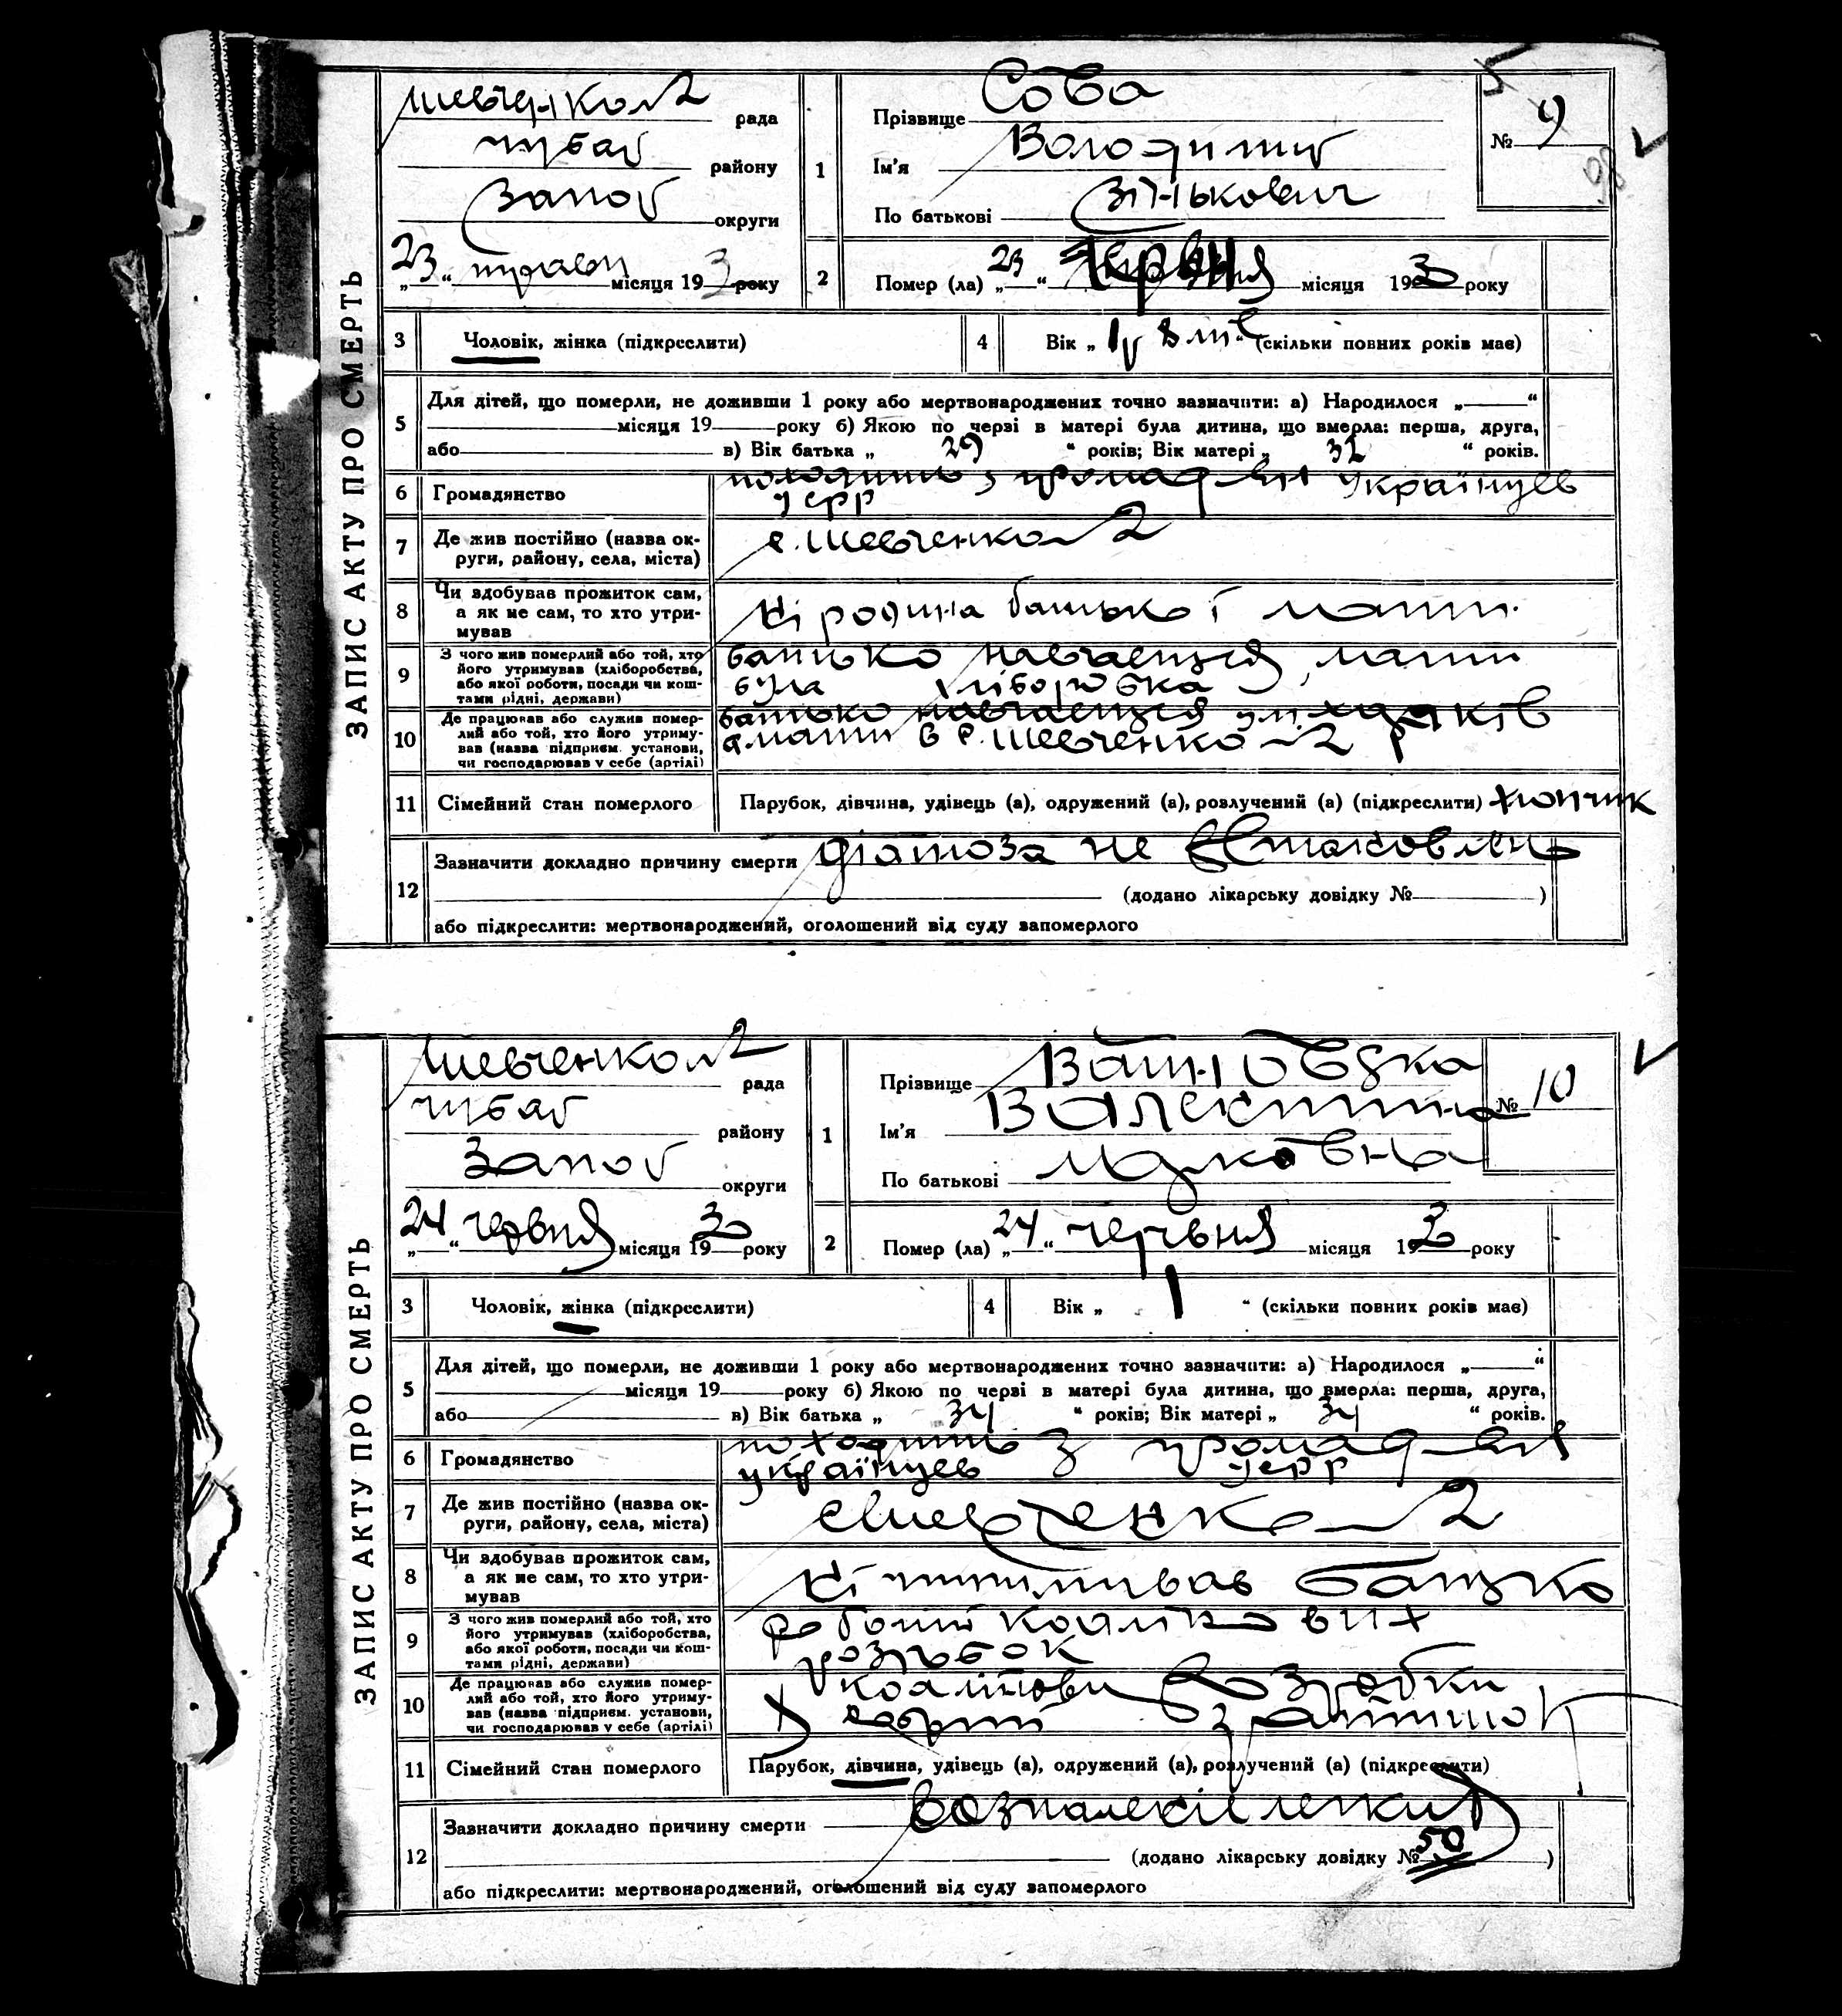 ЗАПИС АКТУ ПРО СМЕРТЬ
Шевченко № 2 рада
Чубар району
Запор округи
„23“ травня місяця 193 року
1
Прізвище Сова
Ім'я Володимир
По батькові Зінькович
№ 9
2
Помер (ла) „23“ червня місяця 193 року
3
Чоловік, жінка (підкреслити)
4
Вік „ “ (скільки повних років має)
5
Для дітей, що померли, не доживши 1 року або мертвонароджених точно зазначити: а) Народилося „ “
місяця 19 року б) Якою по черзі в матері була дитина, що вмерла: перша, друга,
або в) Вік батька „ 29 “ років; Вік матері „ 32 “ років.
6
Громадянство
походить з громад-вия українцев
УСРР
7
Де жив постійно (назва ок-
руги, району, села, міста)
с. Шевченко № 2
8
Чи здобував прожиток сам,
а як не сам, то хто утри-
мував
Ні родина батько і мати
9
З чого жив померлий або той, хто
його утримував (хліборобства,
або якої роботи, посади чи кош-
тами рідні, держави)
батько навчаеться, мати
була хліборобка
10
Де працював або служив помер-
лий або той, хто його утриму-
вав (назва підприєм. установи,
чи господарював у себе (артілі)
батько навчаеться
а мати в с. Шевченко № 2
11
Сімейний стан померлого
Парубок, дівчина, удівець (а), одружений (а), розлучений (а) (підкреслити) хлопчик
12
Зазначити докладно причину смерти діагноза не
(додано лікарську довідку № )
або підкреслити: мертвонароджений, оголошений від суду запомерлого
ЗАПИС АКТУ ПРО СМЕРТЬ
Шевченко № 2 рада
Чубар району
Запор округи
„24“ червня місяця 193 року
1
Прізвище
Ім'я Валентина
По батькові
№ 10
2
Помер (ла) „24“ червня місяця 193 року
3
Чоловік, жінка (підкреслити)
4
Вік „ 1 “ (скільки повних років має)
5
Для дітей, що померли, не доживши 1 року або мертвонароджених точно зазначити: а) Народилося „ “
місяця 19 року б) Якою по черзі в матері була дитина, що вмерла: перша, друга,
або в) Вік батька „ 34 “ років; Вік матері „ 34 “ років.
6
Громадянство
походить з громад-вия
українцев УСРР
7
Де жив постійно (назва ок-
руги, району, села, міста)
с Шевченко № 2
8
Чи здобував прожиток сам,
а як не сам, то хто утри-
мував
Ні батько
9
З чого жив померлий або той, хто
його утримував (хліборобства,
або якої роботи, посади чи кош-
тами рідні, держави)
10
Де працював або служив помер-
лий або той, хто його утриму-
вав (назва підприєм. установи,
чи господарював у себе (артілі)
11
Сімейний стан померлого
Парубок, дівчина, удівець (а), одружений (а), розлучений (а) (підкреслити)
12
Зазначити докладно причину смерти
(додано лікарську довідку № 50 )
або підкреслити: мертвонароджений, оголошений від суду запомерлого